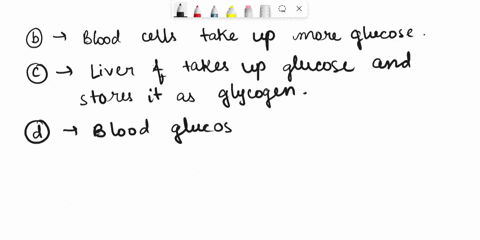 b → Blood cells take up more glucose.
c → Liver takes up glucose and
stores it as glycogen.
d → Blood glucos